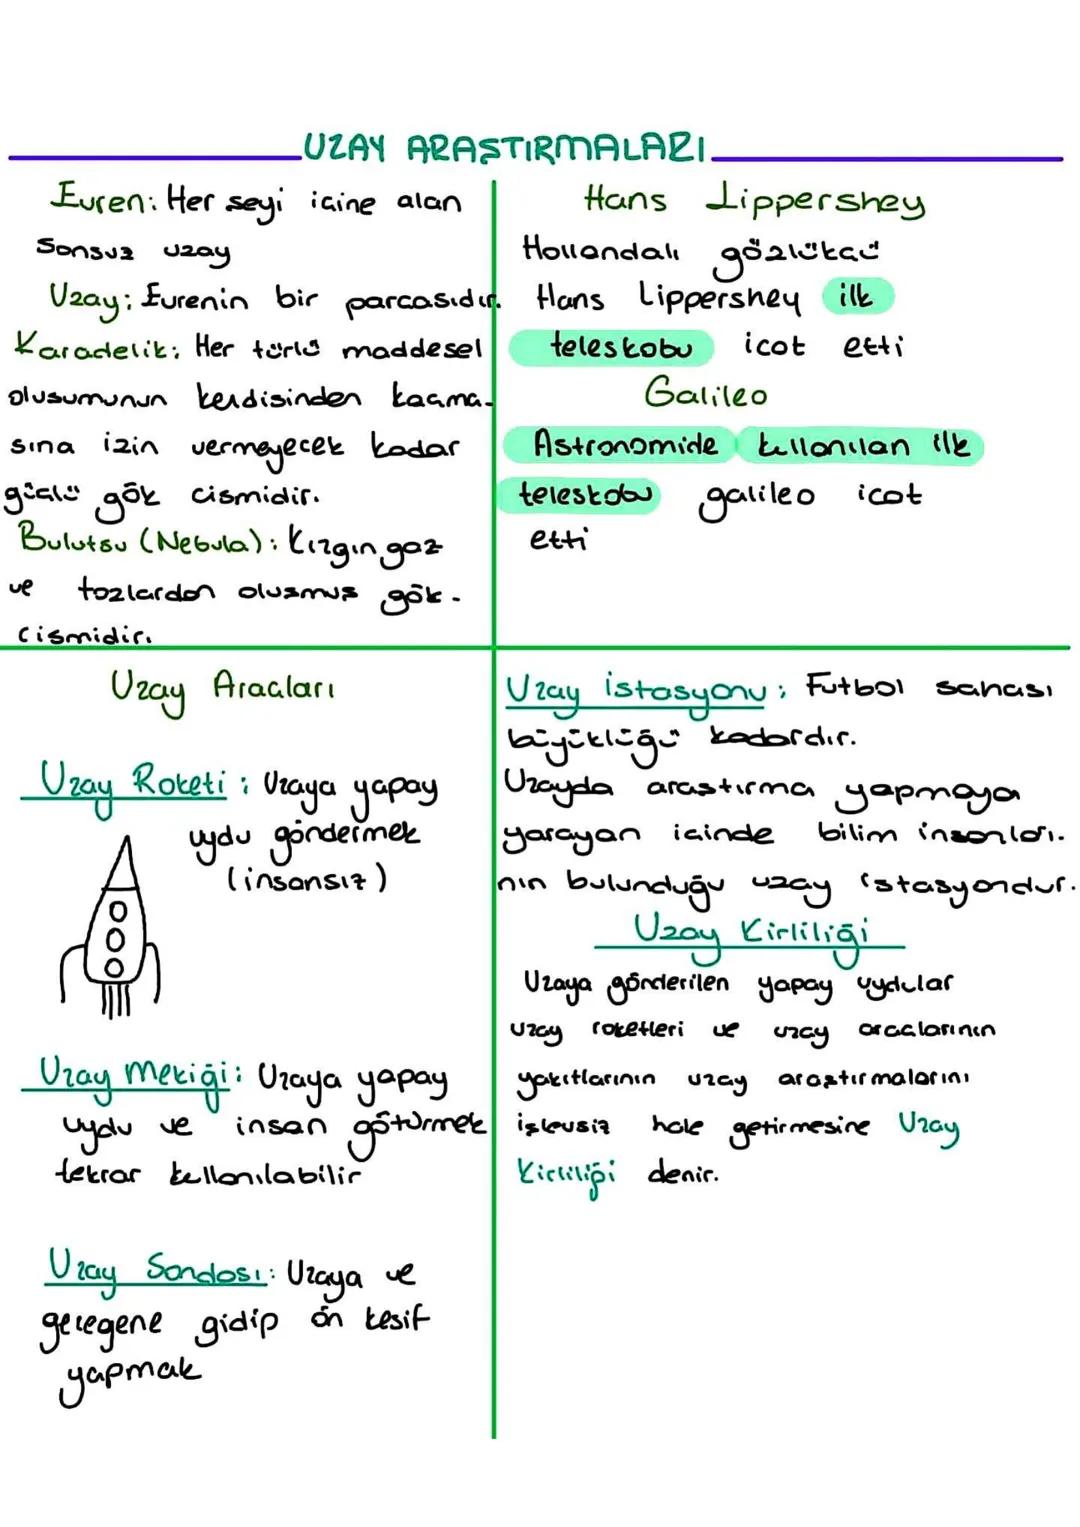 UZAY ARAŞTIRMALARI
Evren: Her seyi icine alan
sonsuz uzay
Uzay: Evrenin bir parcasıdır.
Karadelik: Her türlü maddesel
olusumunun kendisinden kacma-
sına izin vermeyecek kadar
güclü gök cismidir.
Bulutsu (Nebula): Kızgın gaz
ve tozlardan olusmus gök-
cismidir.
Hans Lippershey
Hollandalı gözlükcü
Hans Lippershey ilk
teleskobu icat etti
Galileo
Astronomide kullanılan ilk
teleskobu galileo icat
etti
Uzay Aracları
Uzay Roketi: Uzaya yapay
uydu göndermek
(insansız)
Uzay Mekiği: Uzaya yapay
uydu ve insan götürmek
tekrar kullanılabilir
Uzay Sondası: Uzaya ve
gezegene gidip ön kesif
yapmak
Uzay istasyonu: Futbol sahası
büyüklüğü kadardır.
Uzayda arastırma yapmaya
yarayan icinde bilim insanları-
nın bulunduğu uzay istasyondur.
Uzay Kirliliği
Uzaya gönderilen yapay uydular
uzay roketleri ve uzay araclarının
yakıtlarının uzay arastırmalarını
işlevsiz hale getirmesine Uzay
Kirliliği denir.